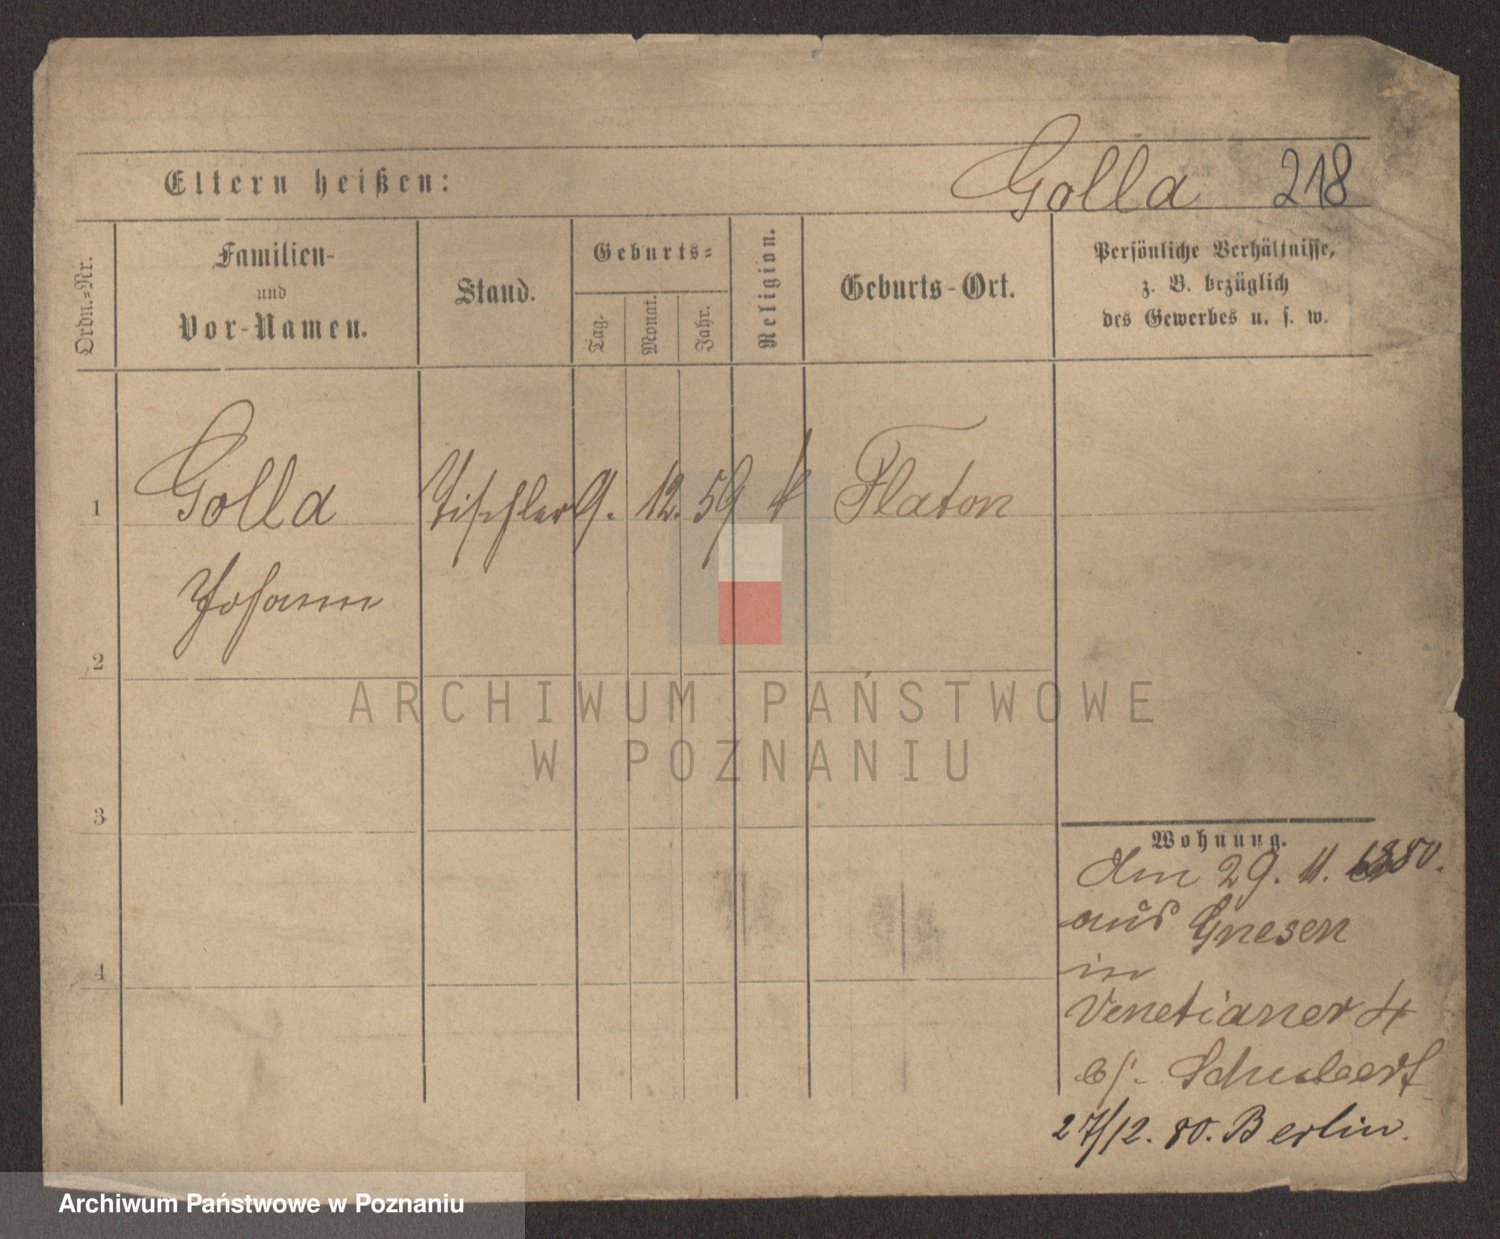 Eltern heißen:
Golla 218
Ordn.-Nr.
Familien-
und
Vor-Namen.
Stand.
Geburts-
Tag.
Monat.
Jahr.
Religion.
Geburts-Ort.
Persönliche Verhältnisse,
z. B. bezüglich
des Gewerbes u. s. w.
1
Golla Tischler 9. 12. 59 k Flaton
Johann
2
3
4
ARCHIWUM PAŃSTWOWE
W POZNANIU
Wohnung.
Am 29. 11. 1880.
aus Gnesen
in
Venetianer 4
b/. Schubert
27/12. 80. Berlin.
Archiwum Państwowe w Poznaniu